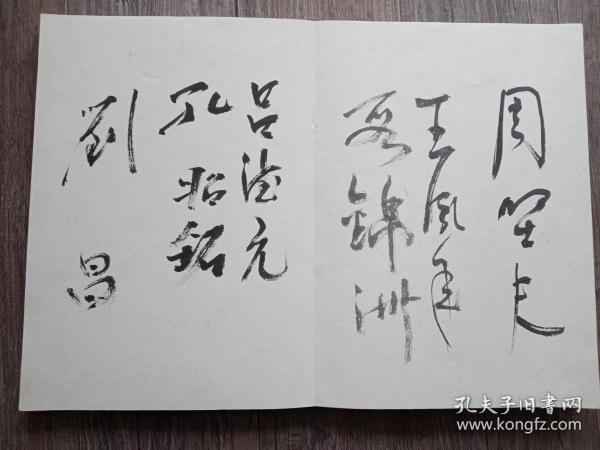 周坚夫
王凤年
锦洲
吕德元
孔昭铭
劉昌
孔夫子旧书网
www.kongfz.com